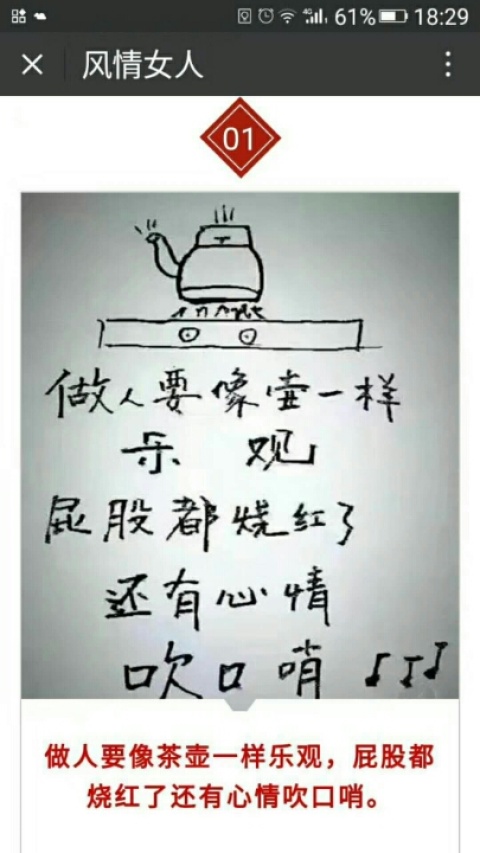 4G 61% 18:29
× 风情女人
01
做人要像壶一样
乐 观
屁股都烧红了
还有心情
吹口哨
做人要像茶壶一样乐观，屁股都
烧红了还有心情吹口哨。